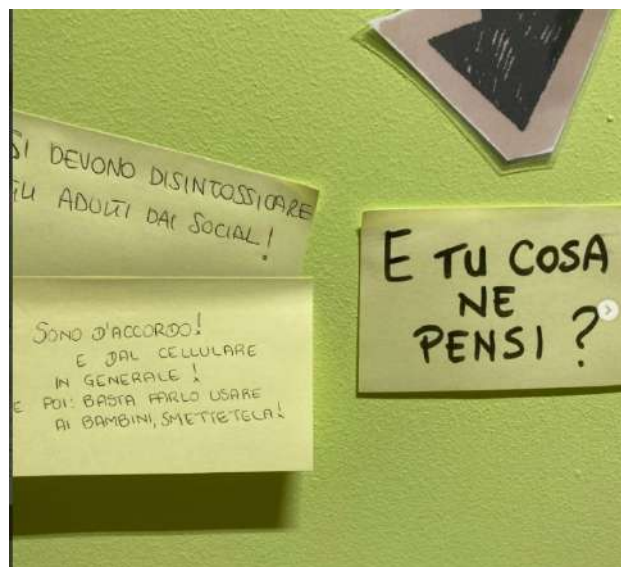 SI DEVONO DISINTOSSICARE
GLI ADULTI DAI SOCIAL!
SONO D'ACCORDO!
E DAL CELLULARE
IN GENERALE!
E POI: BASTA FARLO USARE
AI BAMBINI, SMETTETELA!
E TU COSA
NE
PENSI?